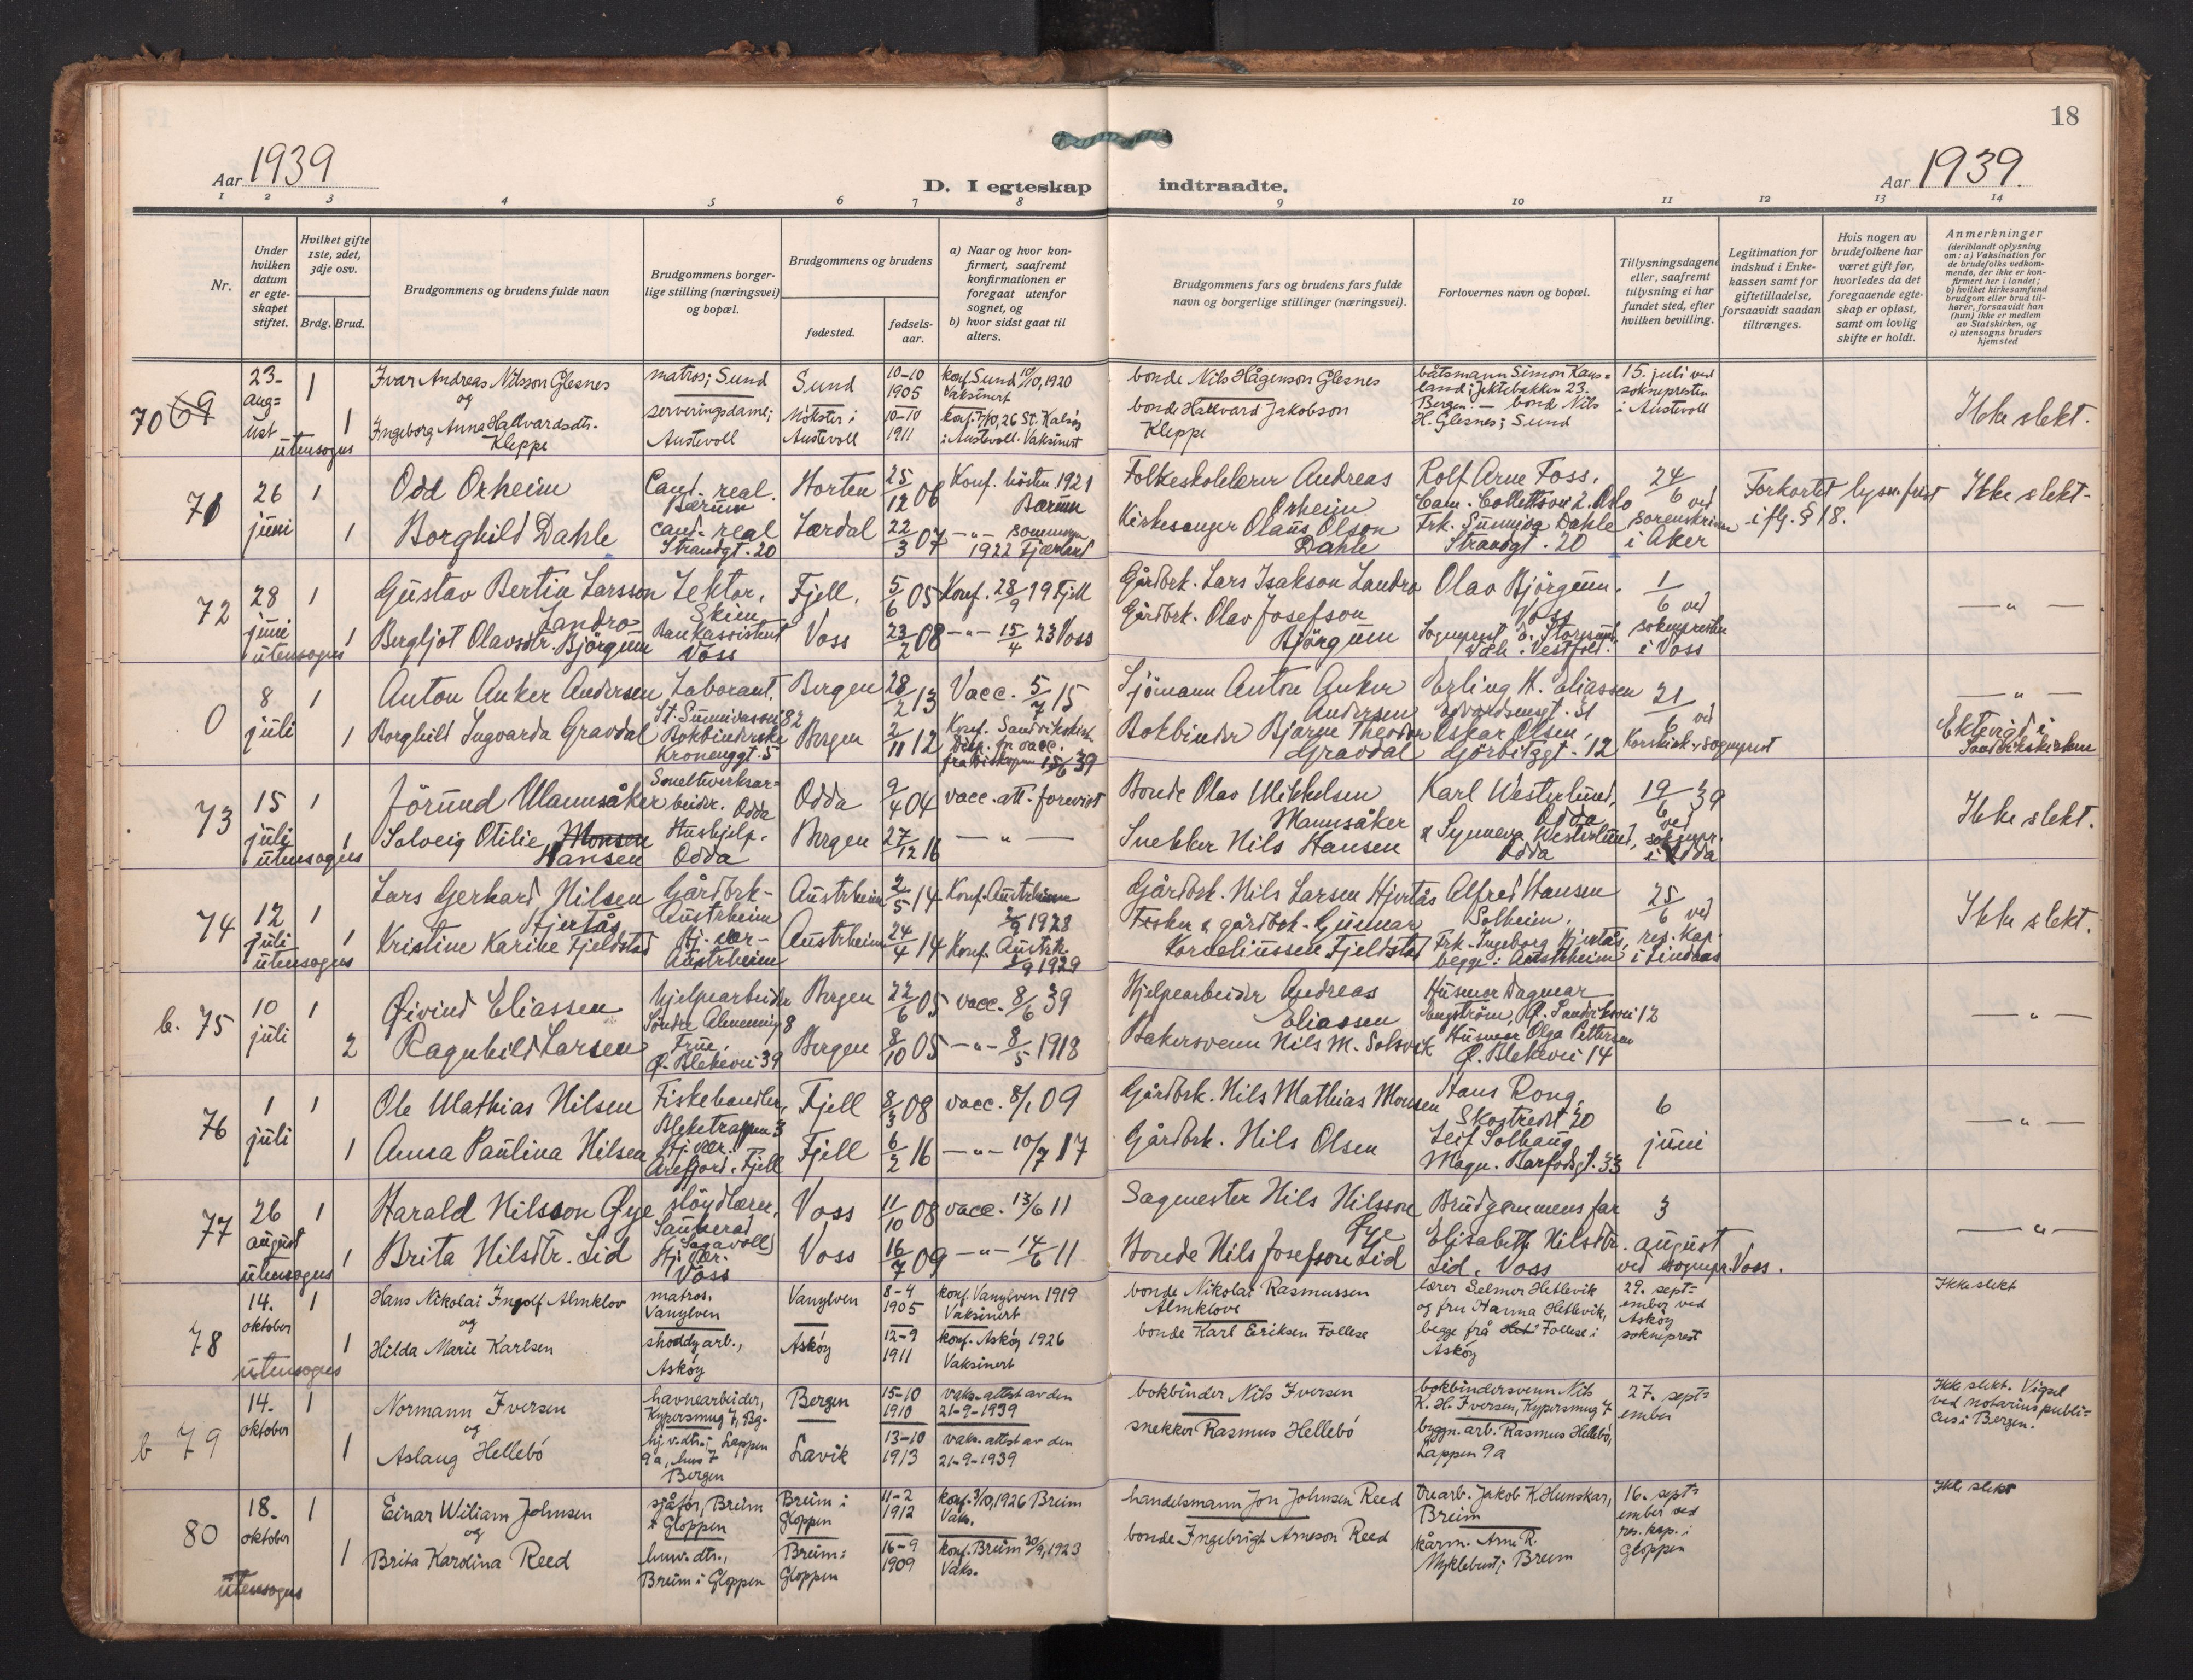 18
Aar 1939
D. I egteskap indtraadte.
Aar 1939.
1 2 3 4 5 6 7 8 9 10 11 12 13 14
Nr.
Under hvilken datum er egteskapet stiftet.
Hvilket gifte 1ste, 2det, 3dje osv.
Brdg. Brud.
Brudgommens og brudens fulde navn
Brudgommens borgerlige stilling (næringsvei) og bopæl.
Brudgommens og brudens
fødested.
fødselsaar.
a) Naar og hvor konfirmert, saafremt konfirmationen er foregaat utenfor sognet, og
b) hvor sidst gaat til alters.
Brudgommens fars og brudens fars fulde navn og borgerlige stillinger (næringsvei).
Forlovernes navn og bopæl.
Tillysningsdagene eller, saafremt tillysning ei har fundet sted, efter hvilken bevilling.
Legitimation for indskud i Enkekassen samt for giftetilladelse, forsaavidt saadan tiltrænges.
Hvis nogen av brudefolkene har været gift før, hvorledes da det foregaaende egteskap er opløst, samt om lovlig skifte er holdt.
Anmerkninger
(deriblandt oplysning om: a) Vaksination for de brudefolks vedkommende, der ikke er konfirmert her i landet; b) hvilket kirkesamfund brudgom eller brud tilhører, forsaavidt han (hun) ikke er medlem av Statskirken, og c) utensogns bruders hjemsted
70 69 23-august 1 Ivar Andreas Nilsson Glesnes matros; Sund Sund 10-10 1905 konf. Sund 10/10, 1920 Vaksinert bonde Nils Hågenson Glesnes båtsmann Simon Kausland; Jektebakken 23. Bergen. - bonde Nils H. Glesnes; Sund 15. juli ved soknepresten i Austevoll Ikke slekt.
og
utensogns 1 Ingeborg Anna Hallvardsdtr. Kleppe serveringsdame; Austevoll Møkster i Austevoll 10-10 1911 konf. 7/10, 26 St. Kalsøy i Austevoll. Vaksinert bonde Hallvard Jakobson Kleppe
71 26 juni 1 Odd Orheim Cand. real. Bærum Horten 25/12 06 Konf. hösten 1921 Bærum Folkeskolelærer Andreas Orheim Rolf Arne Foss, Cam. Collettsvei 2. Oslo 24/6 ved sorenskriver i Aker Forkortet lysn. frist iflg. § 18. Ikke slekt-
1 Borghild Dahle cand. real Strandgt. 20 Lærdal 22/3 07 -"- sommeren 1922 Fjærland Kirkesanger Olaus Olson Dahle Frk. Sunniva Dahle Strandgt. 20
72 28 juni 1 Gustav Bertin Larsson Landro Lektor, Skien Fjell, 5/6 05 Konf. 28/9 19 Fjell Gårdbrk. Lars Isakson Landro Olav Bjørgum, Voss 1/6 ved soknepresten i Voss -"-
utensogns 1 Bergljot Olavsdtr. Bjørgum Bankassistent Voss Voss 23/2 08 -"- 15/4 23 Voss Gårdbrk. Olav Josefson Bjørgum Vestfold.
0 8 juli 1 Anton Anker Andersen Laborant. St. Sunnivasvei 82 Bergen 28/2 13 Vacc. 5/7 15 Sjömann Anton Anker Andersen Erling H. Eliassen Edvardsensgt. 31 21/6 ved Korskirk. sogneprest -"-
1 Borghild Ingvarda Gravdal Bokbinderske Kronenggt. 5 Bergen 2/11 12 Konf. Sandvikskirk. Disp. for vacc. fra biskopen 15/6 39 Bokbinder Bjarne Theodor Gravdal Oskar Olsen, Gørbitzgt. 12 Ektevigd i Sandvikskirken
73 15 juli 1 Jörund Mannsåker Smelteverksarbeider. Odda Odda 9/4 04 vacc. att. forevist Bonde Olav Mikkelsen Mannsåker Karl Westerlund, Odda 19/6 39 ved soknepr. i Odda Ikke slekt.
utensogns 1 Solveig Otilie Monsen Hansen Hushjelp. Odda Bergen 27/12 16 -"- Snekker Nils Hansen & Synneva Westerlund, Odda
74 12 juli 1 Lars Gerhard Nilsen Hjertås Gårdbrk- Austrheim Austrheim 2/5 14 Konf. Austrheim 2/9 1928 Gårdbrk. Nils Larsen Hjertås Alfred Hansen Solheim, 25/6 ved res. kap. i Lindaas Ikke slekt.
utensogns 1 Kristine Karine Fjeldstad Hj. vær- Austrheim Austrheim 24/4 14 Konf. Austrh. 1/9 1929 Fisker & gårdbrk. Gunnar Korneliussen Fjeldstad Frk. Ingeborg Hjertås, begge: Austrheim
b. 75 10 juli 1 Øivind Eliassen hjelpearbeider Söndre Almenning 8 Bergen 22/6 05 vacc. 8/6 39 Hjelpearbeider Andreas Eliassen Husmor Dagmar Engström, Ø. Sandviksvei 12 -"-
2 Ragnhild Larsen Frue, Ø. Blekevei 39 Bergen 8/10 05 -"- 8/5 1918 Bakersvenn Nils M. Solsvik Husmor Olga Pettersen Ø. Blekevei 14
76 1 juli 1 Ole Mathias Nilsen Fiskehandler, Bleketrappen 3 Fjell 8/3 08 vacc. 8/1 09 Gårdbrk. Nils Mathias Monsen Hans Rong, Skostredet 20 6 juni -"-
1 Anna Paulina Nilsen Hj. vær. Arefjord. Fjell Fjell 6/2 16 -"- 10/7 17 Gårdbrk. Nils Olsen Leif Solhaug Magn. Barfodsgt. 33
77 26 august 1 Harald Nilsson Øye slöydlærer, Sauherad (Sagavoll) Voss 11/10 08 vacc. 13/6 11 Sagmester Nils Nilsson Øye Brudgommens far 3 august ved sognepr. Voss. -"-
utensogns 1 Brita Nilsdtr. Lid Hj. vær. Voss Voss 16/7 09 -"- 14/6 11 Bonde Nils Josefson Lid Elisabeth Nilsdtr. Lid. Voss
78 14. oktober 1 Hans Nikolai Ingolf Almklov matros. Vanylven Vanylven 8-4 1905 konf. Vanylven 1919 Vaksinert bonde Nikolai Rasmussen Almklove lærer Selmer Hetlevik og fru Hanna Hetlevik, begge frå Follese i Askøy 29. september ved Askøy sokneprest Ikke slekt
og
utensogns 1 Hilda Marie Karlsen shoddyarb., Askøy Askøy 12-9 1911 konf. Askøy 1926 Vaksinert bonde Karl Eriksen Follese
b 79 14. oktober 1 Normann Iversen havnearbeider, Kypersmug 7, Bg. Bergen 15-10 1910 vaks. attest av den 21-9-1939 bokbinder Nils Iversen bokbindersvenn Nils K. H. Iversen, Kypersmug 7 27. september Ikke slekt. Vigsel ved notarius publicus i Bergen.
og
1 Aslaug Hellebö hj. v. dtr.; Lappen 9a, hus 7 Bergen Lavik 13-10 1913 vaks. attest av den 21-9-1939 snekker Rasmus Hellebö byggn. arb. Rasmus Hellebö, Lappen 9a
80 18. oktober 1 Einar Wiliam Johnsen sjåfør, Breim i Gloppen Breim i Gloppen 11-2 1912 konf. 3/10, 1926 Breim Vaks. handelsmann Jon Johnsen Reed trearb. Jakob K. Hunskar, Breim 16. september ved res. kap. i Gloppen Ikke slekt
og
utensogns 1 Brita Karolina Reed husv. dtr., Breim i Gloppen Breim i Gloppen 16-9 1909 konf. Breim 30/9, 1923 Vaks. bonde Ingebrigt Arneson Reed kårm. Arne R. Myklebust; Breim